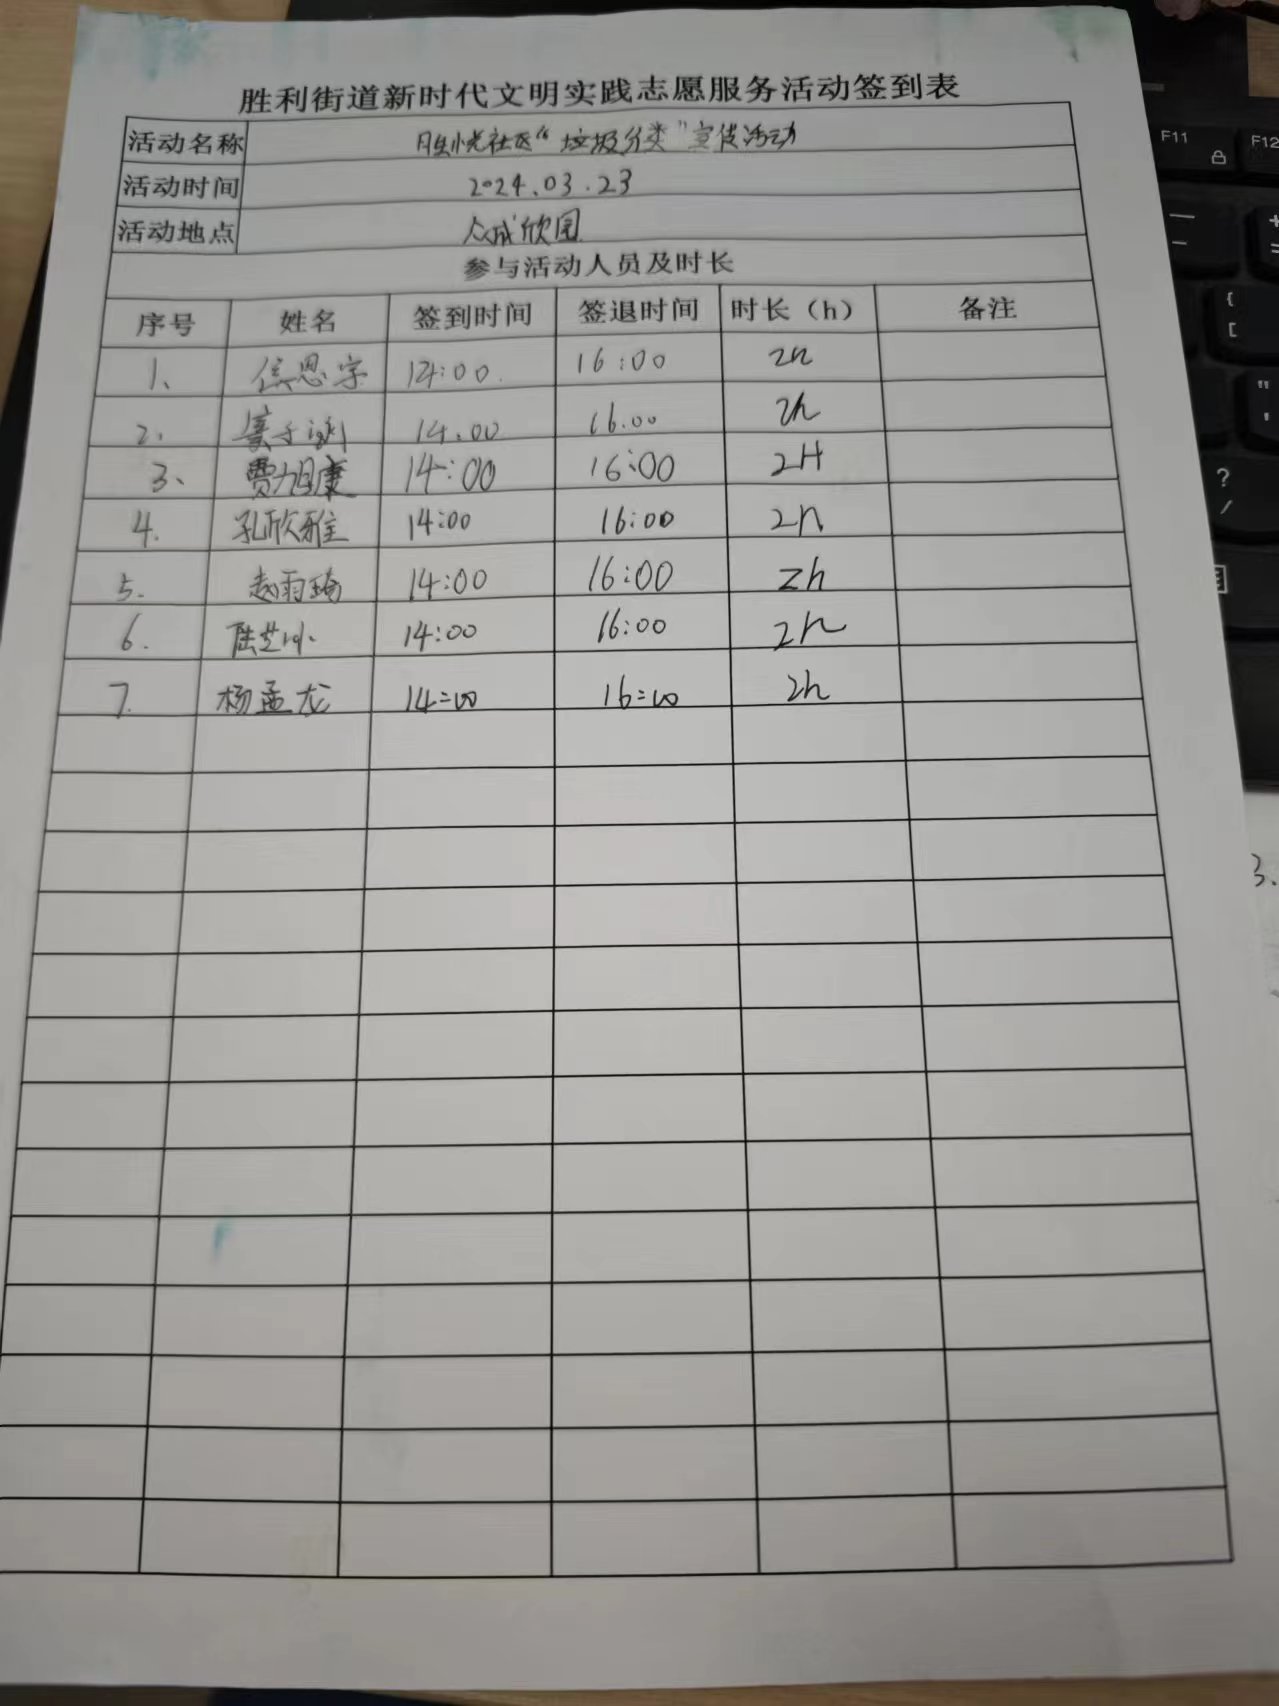 胜利街道新时代文明实践志愿服务活动签到表
活动名称 胜悦社区“垃圾分类”宣传活动
活动时间 2024.03.23
活动地点 众成欣园
参与活动人员及时长
序号 姓名 签到时间 签退时间 时长（h） 备注
1、 14:00 16:00 2h
2. 14.00 16.00 2h
3、 14:00 16:00 2H
4. 孔欣雅 14:00 16:00 2h
5. 赵雨琦 14:00 16:00 2h
6. 14:00 16:00 2h
7. 杨孟龙 14:00 16:00 2h
F11
F12
3.